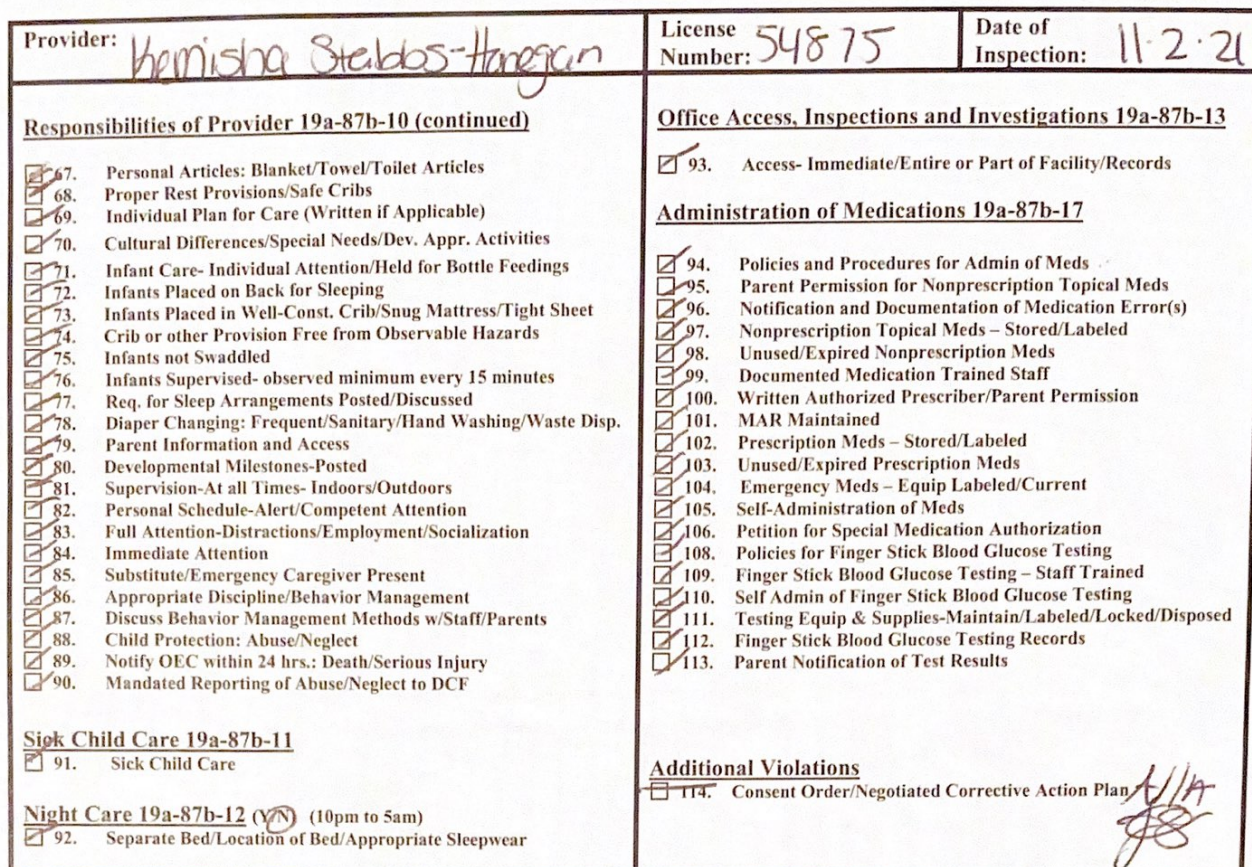 Provider: Kemisha Stebbs-Hanegan
License Number: 54875
Date of Inspection: 11-2-21
Responsibilities of Provider 19a-87b-10 (continued)
67. Personal Articles: Blanket/Towel/Toilet Articles
68. Proper Rest Provisions/Safe Cribs
69. Individual Plan for Care (Written if Applicable)
70. Cultural Differences/Special Needs/Dev. Appr. Activities
71. Infant Care- Individual Attention/Held for Bottle Feedings
72. Infants Placed on Back for Sleeping
73. Infants Placed in Well-Const. Crib/Snug Mattress/Tight Sheet
74. Crib or other Provision Free from Observable Hazards
75. Infants not Swaddled
76. Infants Supervised- observed minimum every 15 minutes
77. Req. for Sleep Arrangements Posted/Discussed
78. Diaper Changing: Frequent/Sanitary/Hand Washing/Waste Disp.
79. Parent Information and Access
80. Developmental Milestones-Posted
81. Supervision-At all Times- Indoors/Outdoors
82. Personal Schedule-Alert/Competent Attention
83. Full Attention-Distractions/Employment/Socialization
84. Immediate Attention
85. Substitute/Emergency Caregiver Present
86. Appropriate Discipline/Behavior Management
87. Discuss Behavior Management Methods w/Staff/Parents
88. Child Protection: Abuse/Neglect
89. Notify OEC within 24 hrs.: Death/Serious Injury
90. Mandated Reporting of Abuse/Neglect to DCF
Sick Child Care 19a-87b-11
91. Sick Child Care
Night Care 19a-87b-12 (Y/N) (10pm to 5am)
92. Separate Bed/Location of Bed/Appropriate Sleepwear
Office Access, Inspections and Investigations 19a-87b-13
93. Access- Immediate/Entire or Part of Facility/Records
Administration of Medications 19a-87b-17
94. Policies and Procedures for Admin of Meds
95. Parent Permission for Nonprescription Topical Meds
96. Notification and Documentation of Medication Error(s)
97. Nonprescription Topical Meds – Stored/Labeled
98. Unused/Expired Nonprescription Meds
99. Documented Medication Trained Staff
100. Written Authorized Prescriber/Parent Permission
101. MAR Maintained
102. Prescription Meds – Stored/Labeled
103. Unused/Expired Prescription Meds
104. Emergency Meds – Equip Labeled/Current
105. Self-Administration of Meds
106. Petition for Special Medication Authorization
108. Policies for Finger Stick Blood Glucose Testing
109. Finger Stick Blood Glucose Testing – Staff Trained
110. Self Admin of Finger Stick Blood Glucose Testing
111. Testing Equip & Supplies-Maintain/Labeled/Locked/Disposed
112. Finger Stick Blood Glucose Testing Records
113. Parent Notification of Test Results
Additional Violations
114. Consent Order/Negotiated Corrective Action Plan N/A